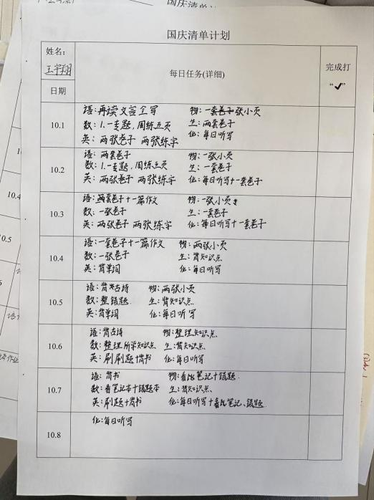 国庆清单计划
姓名:
每日任务(详细)
完成打
"✓"
日期
10.1
语:再读文
物:一套卷子 张小页
数:1.一专题,周练五页
生:两套卷子
英:两张卷子 两张练字
化:每日听写
10.2
语:两套卷子
物:一张小页
数:1.一专题,周练五页
生:一套卷子
英:两张卷子 两张练字
化:每日听写+一套卷子
10.3
语:两套卷子+一篇作文
物:一张小页
数:一张卷子
生:一套卷子
英:两张卷子 两张练字
化:每日听写+一套卷子
10.4
语:一套卷子+一篇作文
物:两张小页
数:一张卷子
生:背知识点
英:背单词
化:每日听写
10.5
语:背古诗
物:两张小页
数:整错题
生:背知识点
英:背单词
化:每日听写
10.6
语:背古诗
物:整理知识点
数:整理所学知识点
生:背知识点
英:刷刷题 背书
化:每日听写
10.7
语:背书
物:看笔记+错题
数:看笔记本+错题本
生:背知识点
英:刷题+背书
化:每日听写+看笔记、错题
10.8
化:每日听写